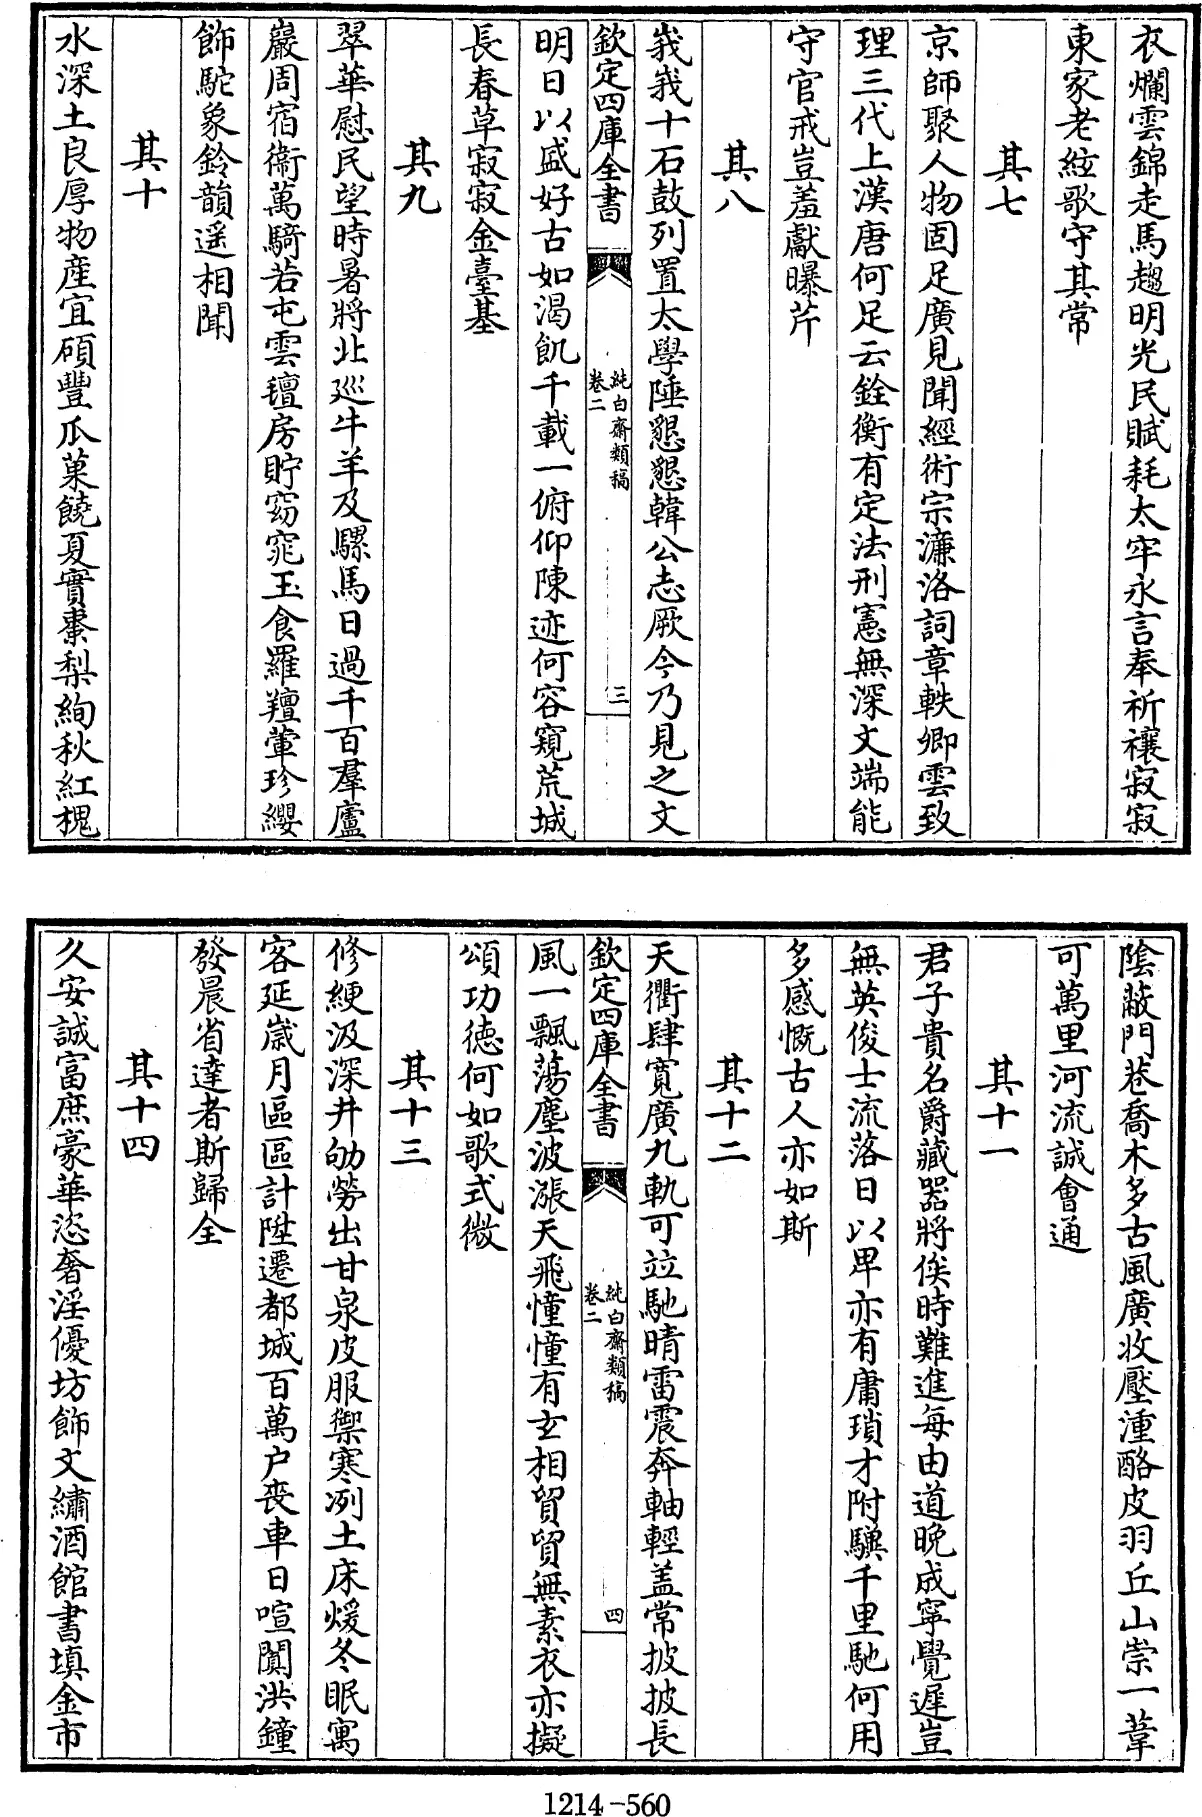 衣爛雲錦走馬趨明光民賦耗太牢永言奉祈禳寂寂
東家老絃歌守其常
其七
京師聚人物固足廣見聞經術宗濂洛詞章軼卿雲致
理三代上漢唐何足云銓衡有定法刑憲無深文端能
守官戒豈羞獻曝芹
其八
峩峩十石鼓列置太學陲懇懇韓公志厥今乃見之文
欽定四庫全書
純白齋類稿
卷二
三
明日以盛好古如渴飢千載一俯仰陳迹何容窺荒城
長春草寂寂金臺基
其九
翠華慰民望時暑將北巡牛羊及騾馬日過千百羣廬
巖周宿衞萬騎若屯雲氊房貯窈窕玉食羅羶葷珍纓
飾駝象鈴韻遥相聞
其十
水深土良厚物産宜碩豐瓜菓饒夏實棗梨絢秋紅槐
陰蔽門巷喬木多古風廣收壓湩酪皮羽丘山崇一葦
可萬里河流誠會通
其十一
君子貴名爵藏器將俟時難進每由道晚成寜覺遲豈
無英俊士流落日以卑亦有庸瑣才附驥千里馳何用
多感慨古人亦如斯
其十二
天衢肆寛廣九軌可竝馳晴雷震奔軸輕盖常披披長
欽定四庫全書
純白齋類稿
卷二
四
風一飄蕩塵波漲天飛憧憧有玄相貿貿無素衣亦擬
頌功徳何如歌式微
其十三
修綆汲深井劬勞出甘泉皮服禦寒冽土床煖冬眠寓
客延歲月區區計陞遷都城百萬户喪車日喧闐洪鐘
發晨省達者斯歸全
其十四
久安誠富庶豪華恣奢淫優坊飾文繡酒館書填金市
1214-560